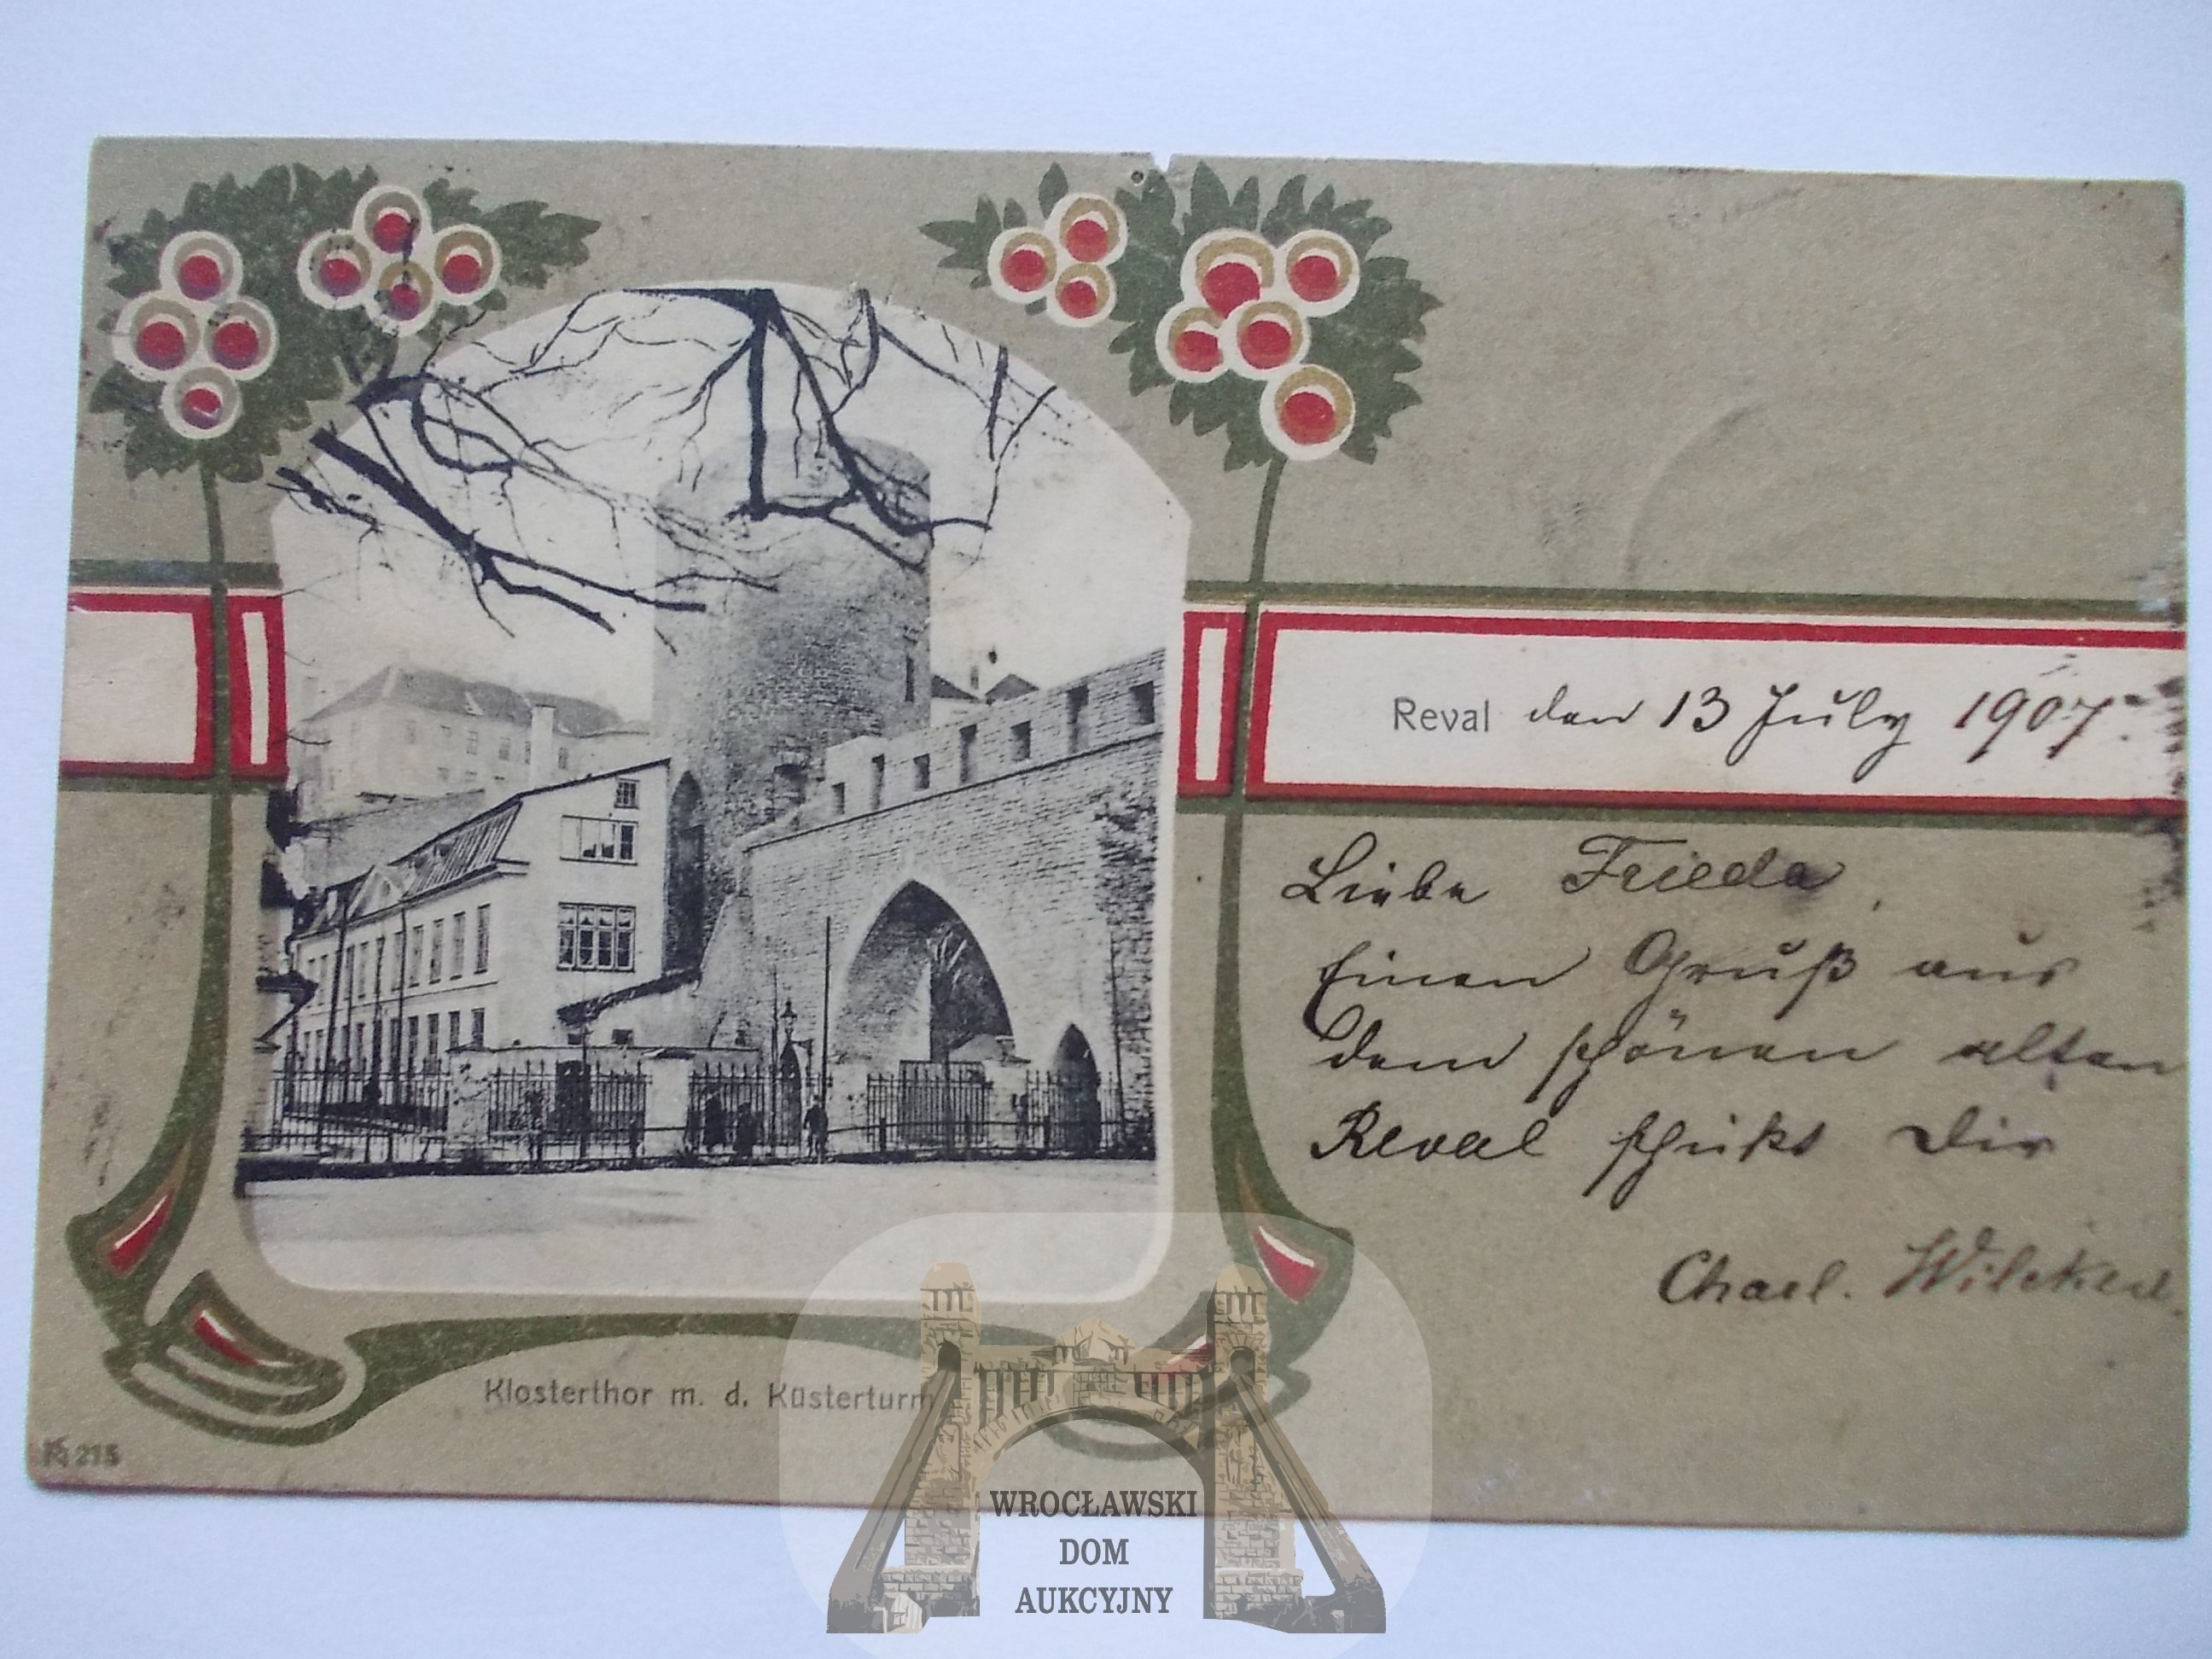 Reval den 13 July 1907.
Liebe Frieda,
Einen Gruß aus
dem schönen alten
Reval schikt Dir
Charl.
Klosterthor m. d. Küsterturm
275
WROCŁAWSKI
DOM
AUKCYJNY